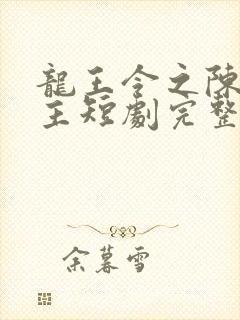 龍王令之陳
主短劇完整
余暮雪